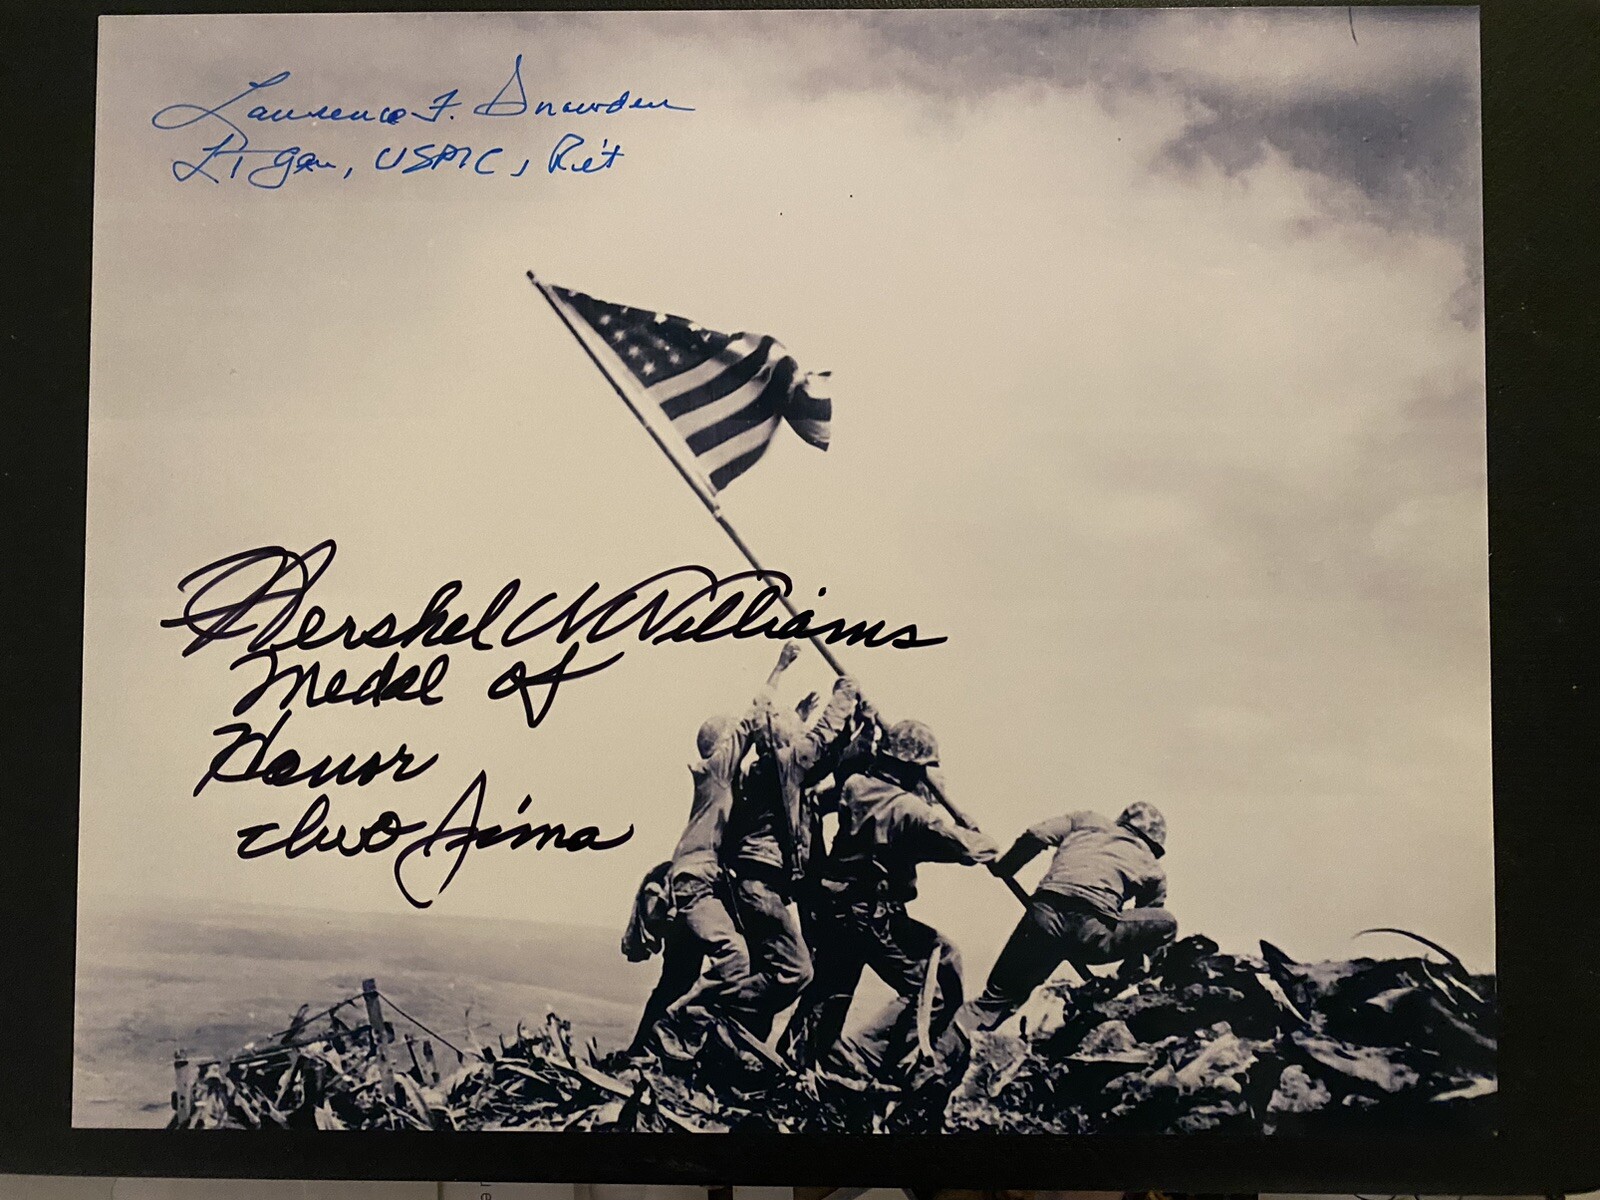 Lawrence F. Snowden
Lt Gen, USMC, Ret
Hershel W Williams
Medal of
Honor
Iwo Jima